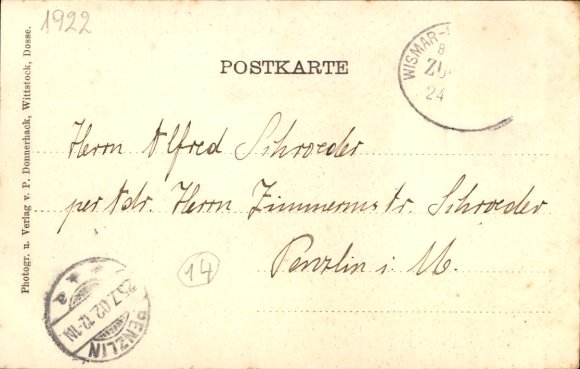 1922
POSTKARTE
WISMAR-
8
ZU
24
Herrn Alfred Schroeder
per Adr. Herrn Zimmermstr. Schroeder
Penzlin i. M.
14
25.7.02.12-1N
PENZLIN
Photogr. u. Verlag v. P. Donnerhack, Wittstock, Dosse.